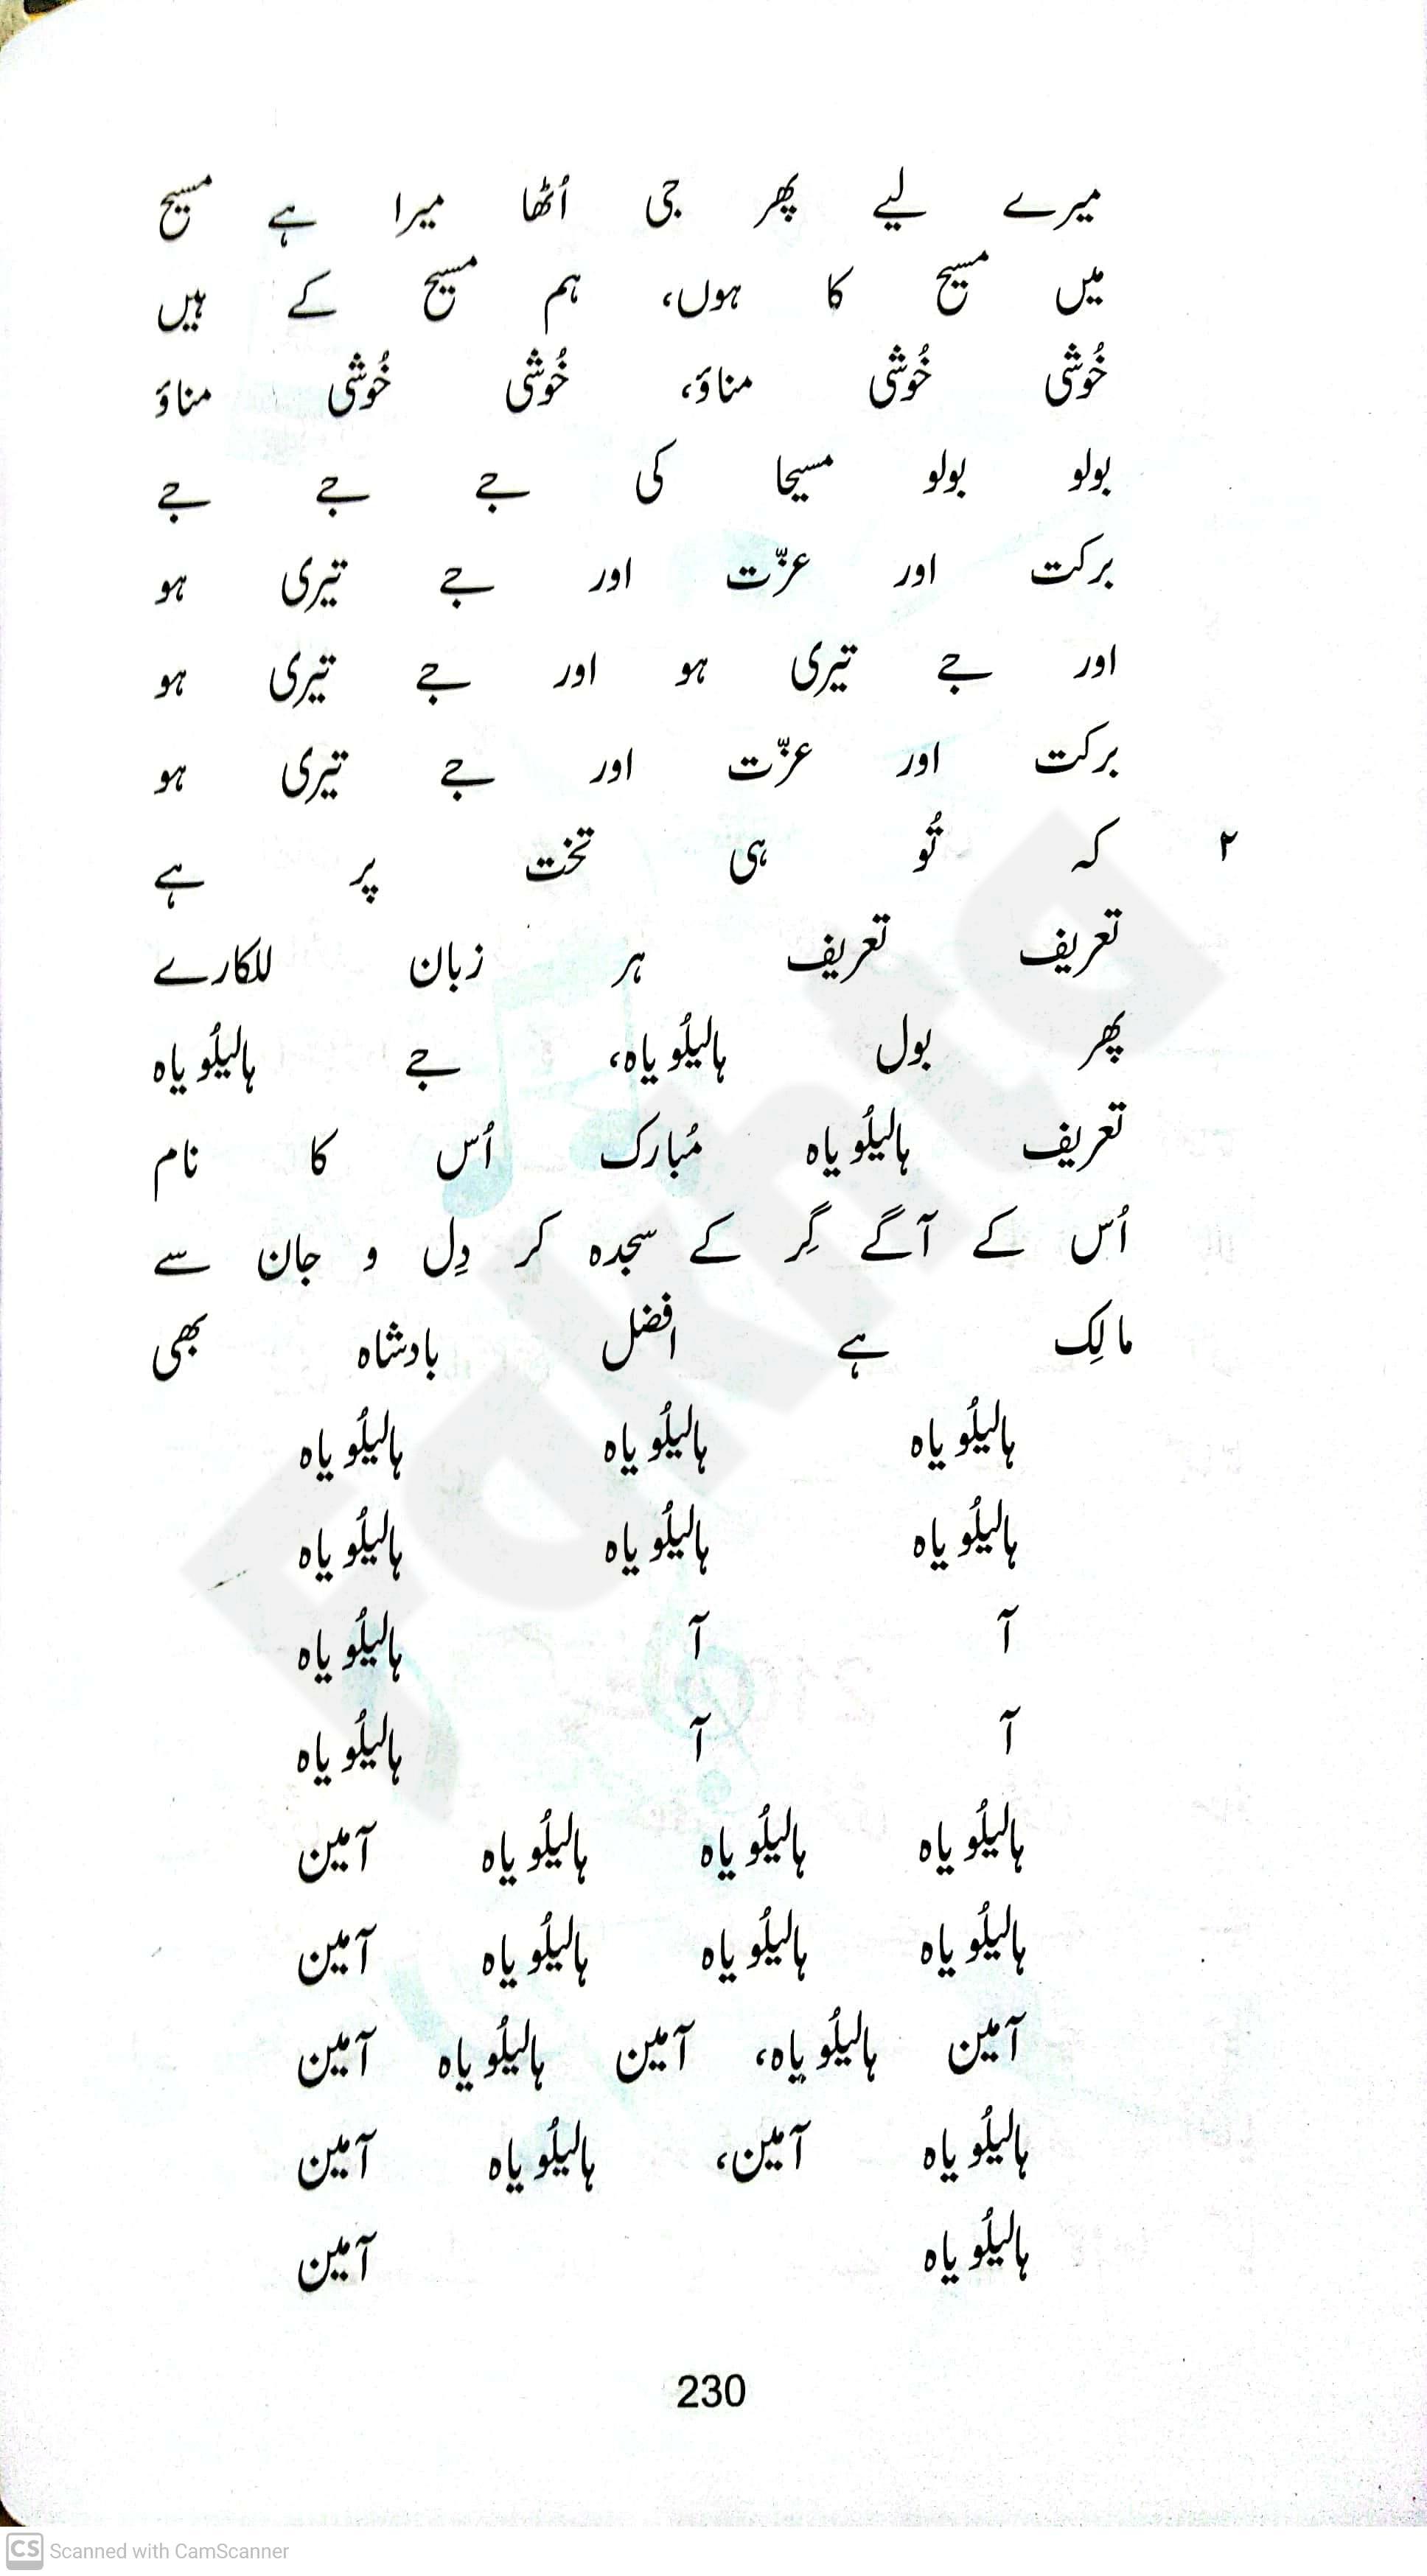 میرے لیے پھر جی اُٹھا میرا ہے مسیح
میں مسیح کا ہوں، ہم مسیح کے ہیں
خُوشی خُوشی مناؤ، خُوشی خُوشی مناؤ
بولو بولو مسیحا کی جے جے جے
برکت اور عزّت اور جے تیری ہو
اور جے تیری ہو اور جے تیری ہو
برکت اور عزّت اور جے تیری ہو
۲ کہ تُو ہی تخت پر ہے
تعریف تعریف ہر زبان للکارے
پھر بول ہالیلُویاہ، جے ہالیلُویاہ
تعریف ہالیلُویاہ مُبارک اُس کا نام
اُس کے آگے گِر کے سجدہ کر دِل و جان سے
مالِک ہے افضل بادشاہ بھی
ہالیلُویاہ ہالیلُویاہ ہالیلُویاہ
ہالیلُویاہ ہالیلُویاہ ہالیلُویاہ
آ آ ہالیلُویاہ
آ آ ہالیلُویاہ
ہالیلُویاہ ہالیلُویاہ ہالیلُویاہ آمین
ہالیلُویاہ ہالیلُویاہ ہالیلُویاہ آمین
آمین ہالیلُویاہ، آمین ہالیلُویاہ آمین
ہالیلُویاہ آمین، ہالیلُویاہ آمین
ہالیلُویاہ آمین
230
Fakhta
CS Scanned with CamScanner